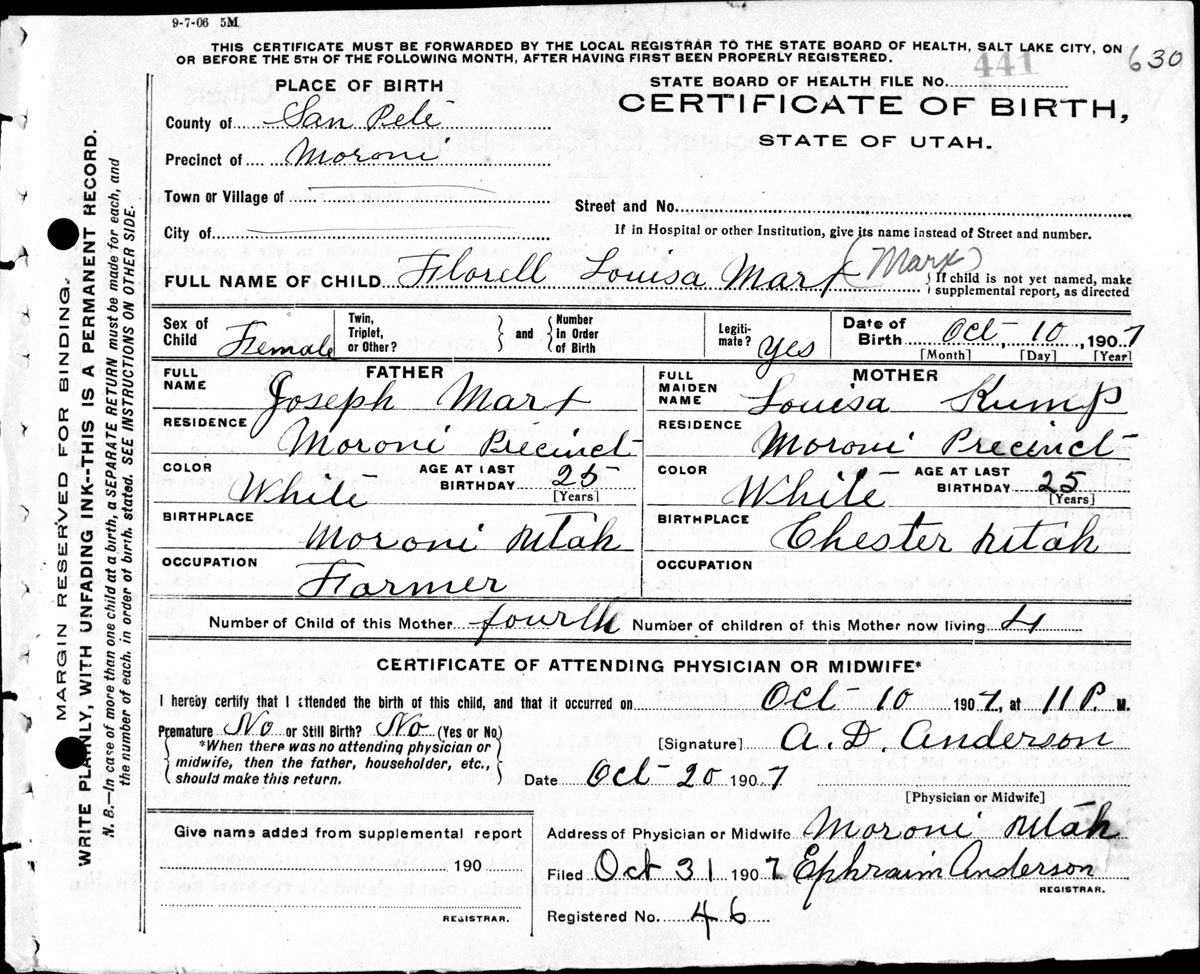 9-7-06 5M
THIS CERTIFICATE MUST BE FORWARDED BY THE LOCAL REGISTRAR TO THE STATE BOARD OF HEALTH, SALT LAKE CITY, ON
OR BEFORE THE 5TH OF THE FOLLOWING MONTH, AFTER HAVING FIRST BEEN PROPERLY REGISTERED.
630
PLACE OF BIRTH
County of San Pete
Precinct of Moroni
Town or Village of
City of
STATE BOARD OF HEALTH FILE No. 441
CERTIFICATE OF BIRTH,
STATE OF UTAH.
Street and No.
If in Hospital or other Institution, give its name instead of Street and number.
FULL NAME OF CHILD Florell Louisa Marx (Marx)
{If child is not yet named, make
supplemental report, as directed
Sex of Child Female
Twin, Triplet, or Other?
and
Number in Order of Birth
Legitimate? Yes
Date of Birth Oct, 10, 1907
[Month] [Day] [Year]
FATHER
FULL NAME Joseph Marx
RESIDENCE Moroni Precinct
COLOR White
AGE AT LAST BIRTHDAY 25
[Years]
BIRTHPLACE Moroni Utah
OCCUPATION Farmer
MOTHER
FULL MAIDEN NAME Louisa Kump
RESIDENCE Moroni Precinct
COLOR White
AGE AT LAST BIRTHDAY 25
[Years]
BIRTHPLACE Chester Utah
OCCUPATION
Number of Child of this Mother fourth Number of children of this Mother now living 4
CERTIFICATE OF ATTENDING PHYSICIAN OR MIDWIFE*
I hereby certify that I attended the birth of this child, and that it occurred on Oct-10 1907, at 11 P. M.
Premature No or Still Birth? No (Yes or No)
*When there was no attending physician or
midwife, then the father, householder, etc.,
should make this return.
[Signature] A. D. Anderson
Date Oct-20 1907
[Physician or Midwife]
Give name added from supplemental report
190
REGISTRAR.
Address of Physician or Midwife Moroni Utah
Filed Oct 31 1907 Ephraim Anderson
REGISTRAR.
Registered No. 46
MARGIN RESERVED FOR BINDING.
WRITE PLAINLY, WITH UNFADING INK--THIS IS A PERMANENT RECORD.
N. B.—In case of more than one child at a birth, a SEPARATE RETURN must be made for each, and
the number of each, in order of birth, stated. SEE INSTRUCTIONS ON OTHER SIDE.